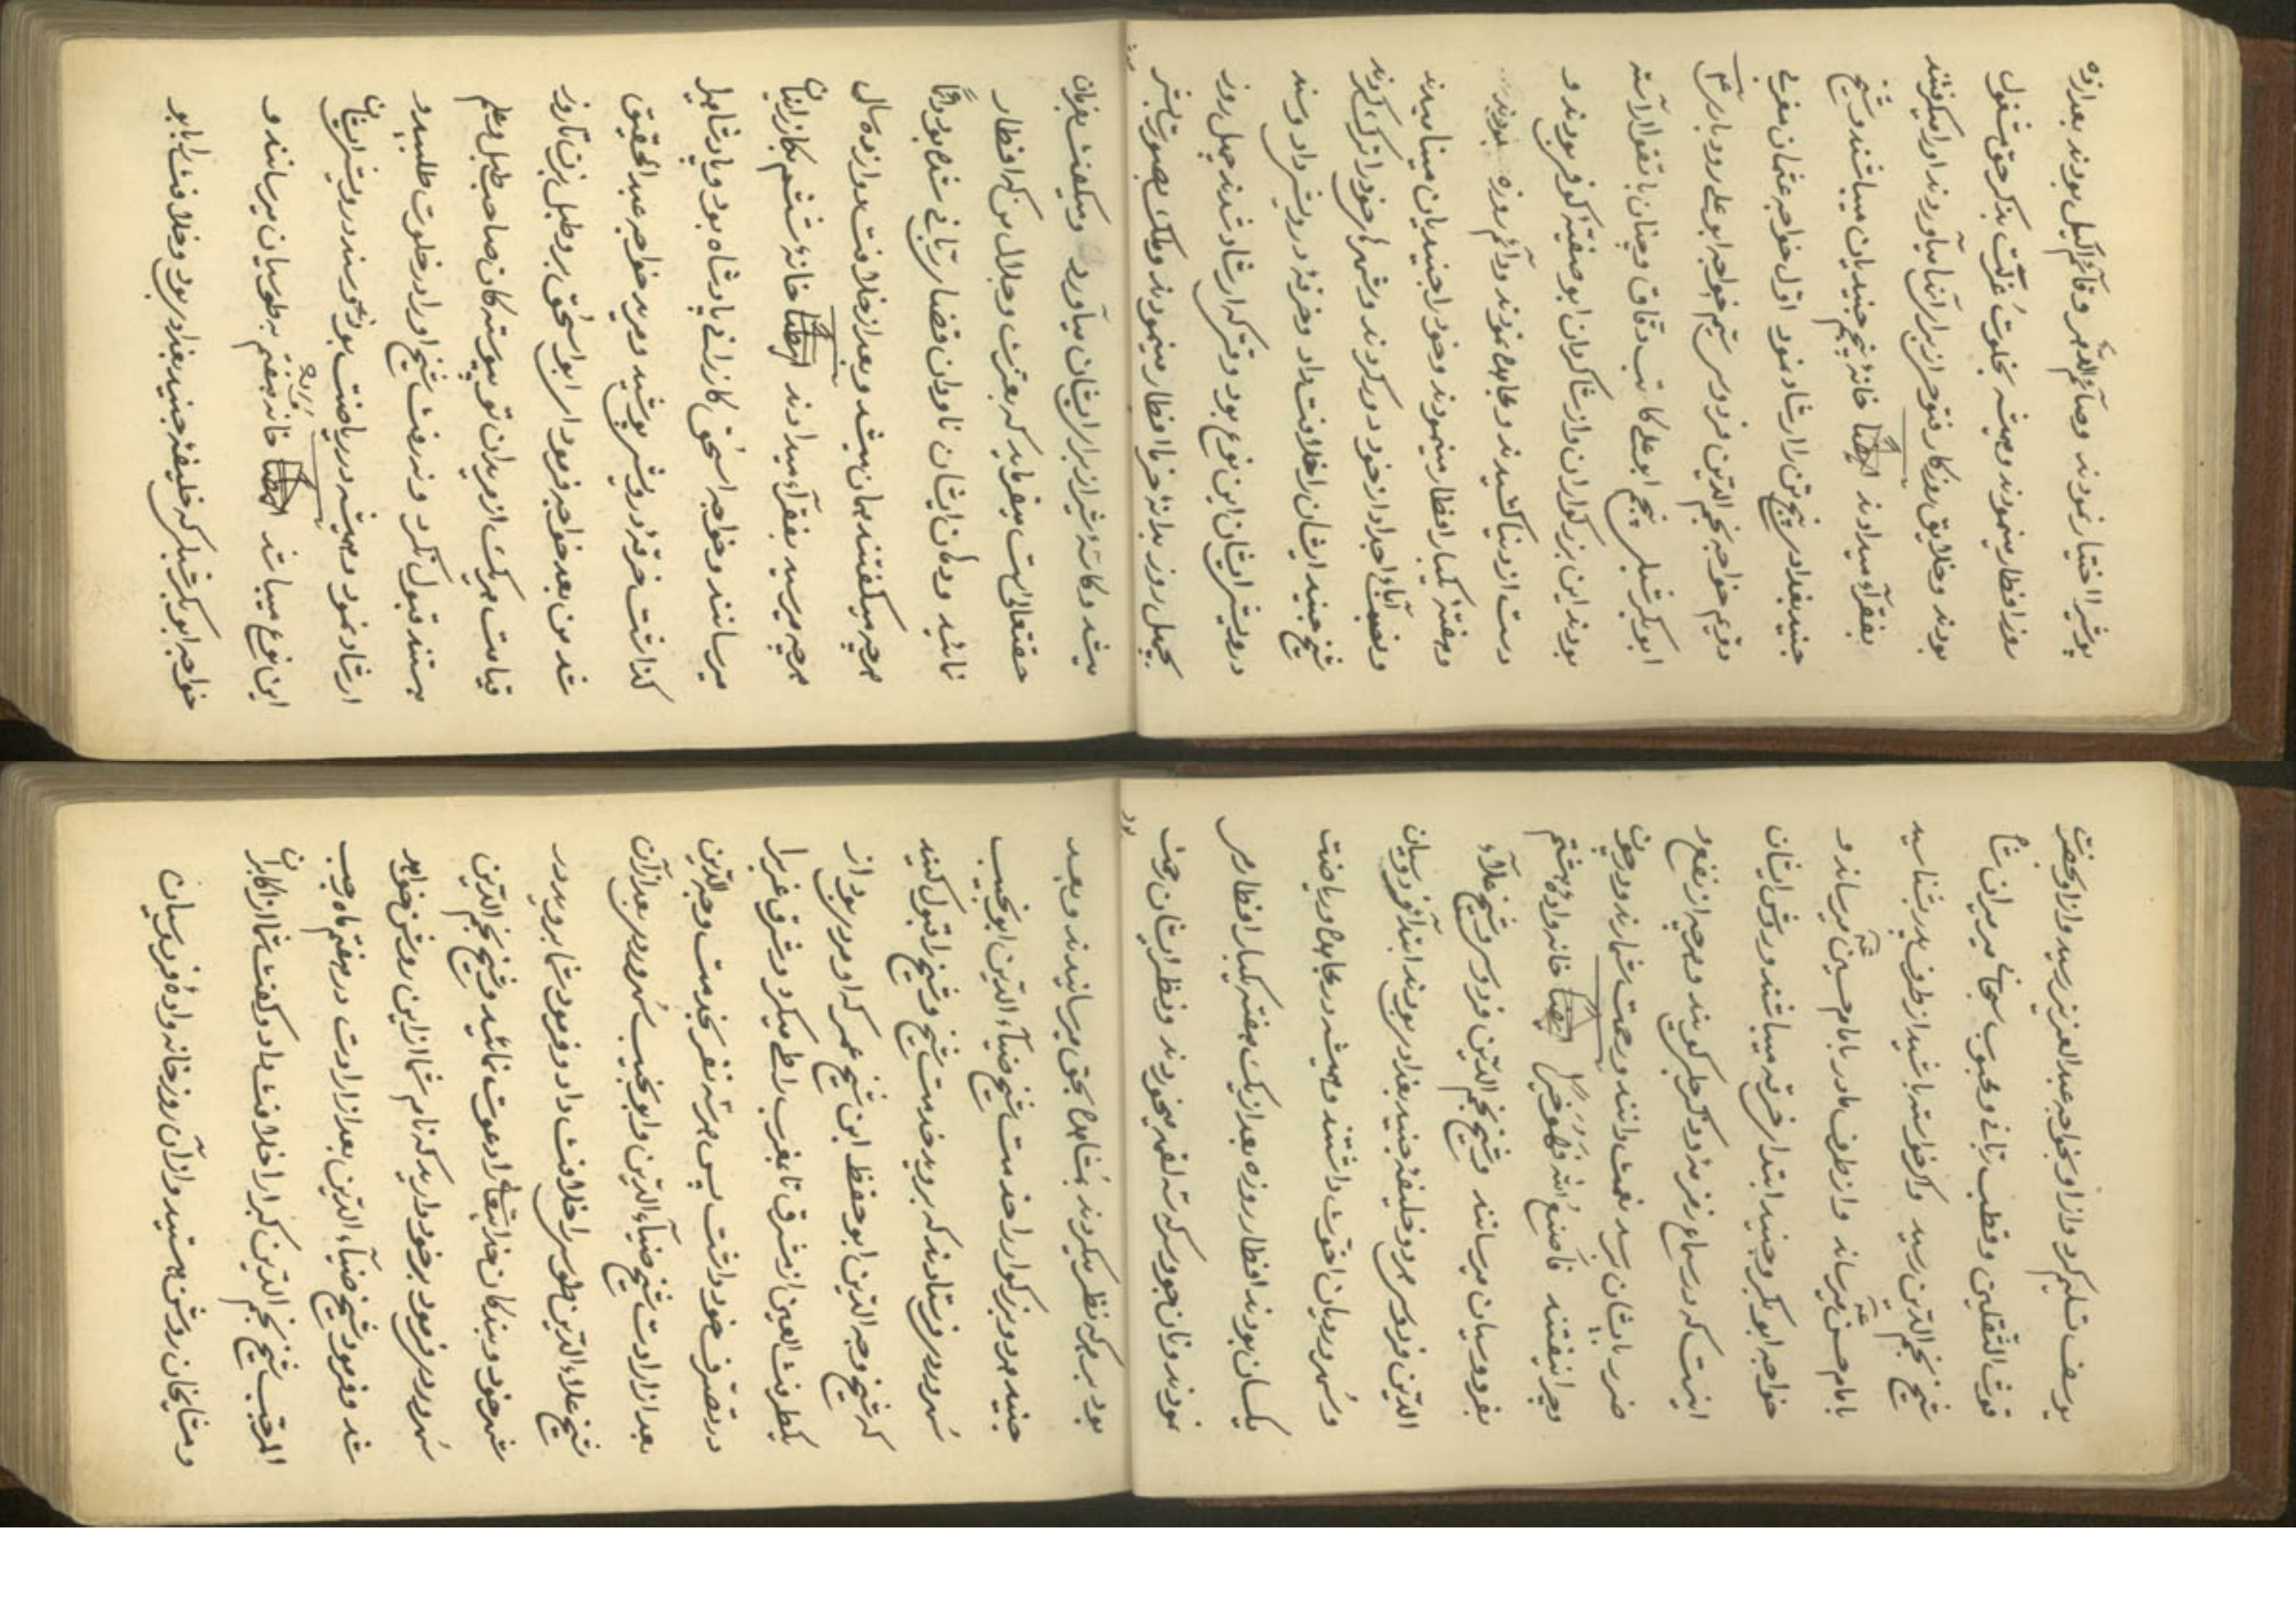 پوشیرا اختیار نمودند و صائم الدهر و قائم اللیل بودند بعد ازده
روز افطار مینمودند و همیشه بخلوت عُزلت بذکر حق مشغول
بودند و خلایق روزکار فتوح از برای آنها میآوردند او را میکرفتند
بفقرآء میدادند ایضاً خانهٔ پنجم جنیدیان میباشند و شیخ
جنید بغدادی پنج تن را ارشاد نمود اوّل خواجه عثمان مغربی
دویم خواجه نجم الدّین فردوسی سیّم خواجه ابو علی رودباری ۴
ابوبکر شبلی پنجم ابو علی کاتب دقاق و چنان با تقوا آراسته
بودند این بزرکواران و از شاکردان ابو حنیفهٔ کوفی بودند و
دست از دنیا کشیدند و مجاهده نمودند و دائم روزه بودند
و هفتهٔ یکبار افطار مینمودند و خود را جنیدیان مینامیدند
و نسبت آباء و اجداد از خود دور کردند و شهرهٔ خود را ترک کردند
شیخ جنید ایشان را خلافت داد و خرقهٔ درویشی داد و سند
درویشی ایشان این نوع بود وقتی که ارشاد شدند چهل روز
بچهل روز بدانهٔ خرما افطار مینمودند و ملک بصورت بشر
میشد و کاسهٔ شیر از برای ایشان میآورد و میکفت بفرمان
حقتعالی است میفرماید که بعزّت و جلال من که افطار
نمائید و دکان ایشان ناودان قضای ربّانی شده بود
هرچه میکفتند همان میشد و بعد از خلافت دوازده سال
هرچه میرسید بفقرآء میدادند ایضاً خانهٔ ششم بکازرانیان
میرسانند و خواجه اسحٰق کازرانی پادشاه بود و پادشاهی
کذاشت خرقهٔ درویشی پوشید و مرید خواجه عبد الحقیق
شد من بعد خواجه فرمود ای ابو اسحٰق برو طبل بزن تا روز
قیامت هر یک از مریدان تو پیوسته کان صاحب طبل و علم
هستند قبول نکرد و نرفت شیخ او را در خلوت طلبید و
ارشاد نمود و همیشه در ریاضت بود و سند درویشی ایشان
این نوع میباشد ایضاً خانه هفتم به طوسیان میرسانند و
خواجه ابوبکر شبلی که خلیفهٔ جنید بغدادی بود و خلافت را بابو
یوسف تسلیم کرد و از او بخواجه عبد العزیز رسید و از او بحضرت
غوث الثّقلین و قطب ربّانی و محبوب سبحانی میر میران شاه
شیخ نجم الدّین رسید و اکر خواسته باشید از طرف پدر بشناسید
بامام حسن میرساند و از طرف مادر بامام حسین میرساند و
خواجه ابوبکر و جنید ابتدای خرقه میباشند و روش ایشان
اینست که در سماع نفر نه و ذکر جلی کویند و هرچه از نفع و
ضرر بایشان برسد نعمت دانند و رحمت شمارند و دم چون
و چرا نیفتند مَا صَنَعَ اللّه فَهُوَ خَیرٌ ایضاً خانه وادهٔ هشتم
بفردوسیان میرسانند و شیخ نجم الدّین فردوسی و شیخ علآء
الدّین فردوسی هر دو خلیفهٔ جنید بغدادی بودند ابتدآء فردوسیان
و سُهروردیان اخوّت داشتند و همیشه در مجاهده و ریاضت
یکسان بودند افطار روزه بعد از یک هفته یکبار افطار می
نمودند و نان جو و سرکه سه لقمه میخوردند و نظر ایشان رحمت
بود بر هرکه نظر میکردند بمُشاهدهٔ حق میرسانیدند و بعد
جنید هر دو بزرکوار را خدمت شیخ ضیآء الدّین ابو نجیب
سُهروردی فرستادند که بروید خدمت شیخ و شیخ را قبول کنید
که شیخ وجه الدّین ابو حفظ ابن شیخ عمر که او مردی بود از
یکطرفت العین از مشرق تا بمغرب را طی میکرد و مشرق و غرب را
در تصرّف خود داشت پس هر سه نفر بخدمت وجه الدّین
بعد از ارادت شیخ ضیآء الدّین و ابو نجیب سُهروردی بعد از آن
شیخ علاء الدّین طوسی را خلافت داد و فرمود شما بروید در
شهر خود و بندکان خدایتعالی را دعوت نمائید و شیخ نجم الدّین
سُهروردی فرمود برخود دارید که نام شما از این روشن خواهد
شد و فرمود شیخ ضیآء الدّین بعد از ارادت در هفتم ماه رجب
المرجّب شیخ نجم الدّین کبرا را خلافت داد و کفت شما از اکابران
و مشایخان روشن هستید و از آن روز خانه وادهٔ فردوسیان